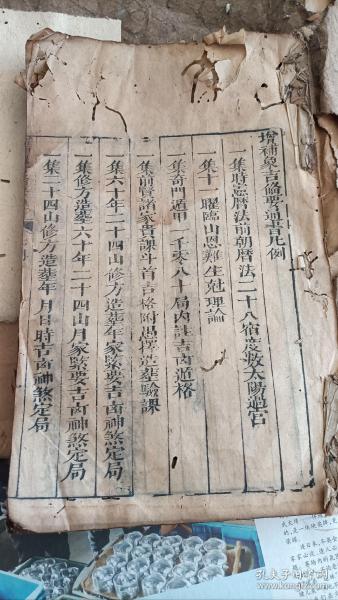 增補象吉備要通書凡例
一集時憲曆法前朝曆法二十八宿度數太陽過宮
一集十一曜臨山恩難生尅理論
一集奇門遁甲一千零八十局內註吉凶道格
一集前賢諸家貴課斗首吉格附愚擇造塟驗課
一集六十年二十四山修方造塟年家緊要吉凶神煞定局
一集修方造塟六十年二十四山月家緊要吉凶神煞定局
一集二十四山修方造塟年月日時吉凶神煞定局
孔夫子旧书网